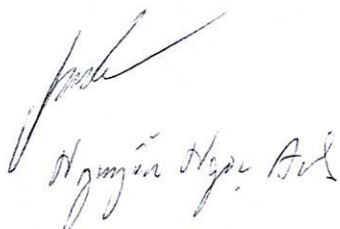 Nguyễn Ngọc Anh